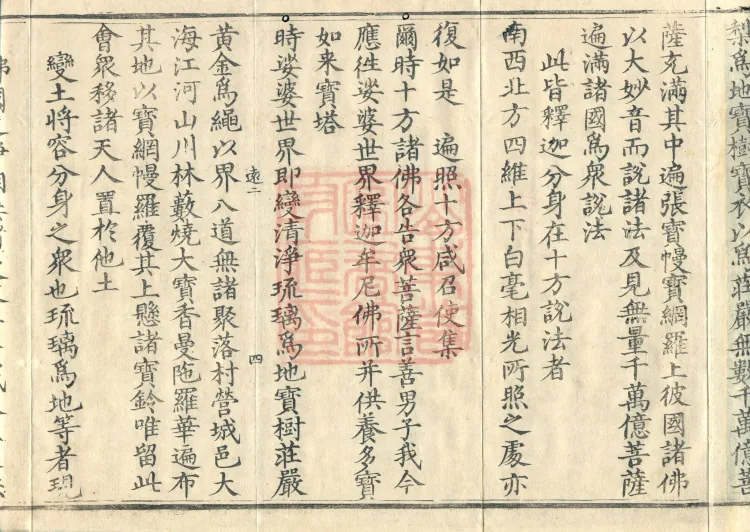 梨為地寶樹寶衣以為莊嚴無數千萬億菩
薩充滿其中遍張寶幔寶網羅上彼國諸佛
以大妙音而說諸法及見無量千萬億菩薩
遍滿諸國為衆說法
此皆釋迦分身在十方說法者
南西北方四維上下白毫相光所照之處亦
復如是 遍照十方咸召使集
爾時十方諸佛各告衆菩薩言善男子我今
應往娑婆世界釋迦牟尼佛所并供養多寶
如来寶塔
時娑婆世界即變清淨琉璃為地寶樹莊嚴
遠二 四
黃金為繩以界八道無諸聚落村營城邑大
海江河山川林藪燒大寶香曼陁羅華遍布
其地以寶網幔羅覆其上懸諸寶鈴唯留此
會衆移諸天人置於他土
變土將容分身之衆也琉璃為地等者現